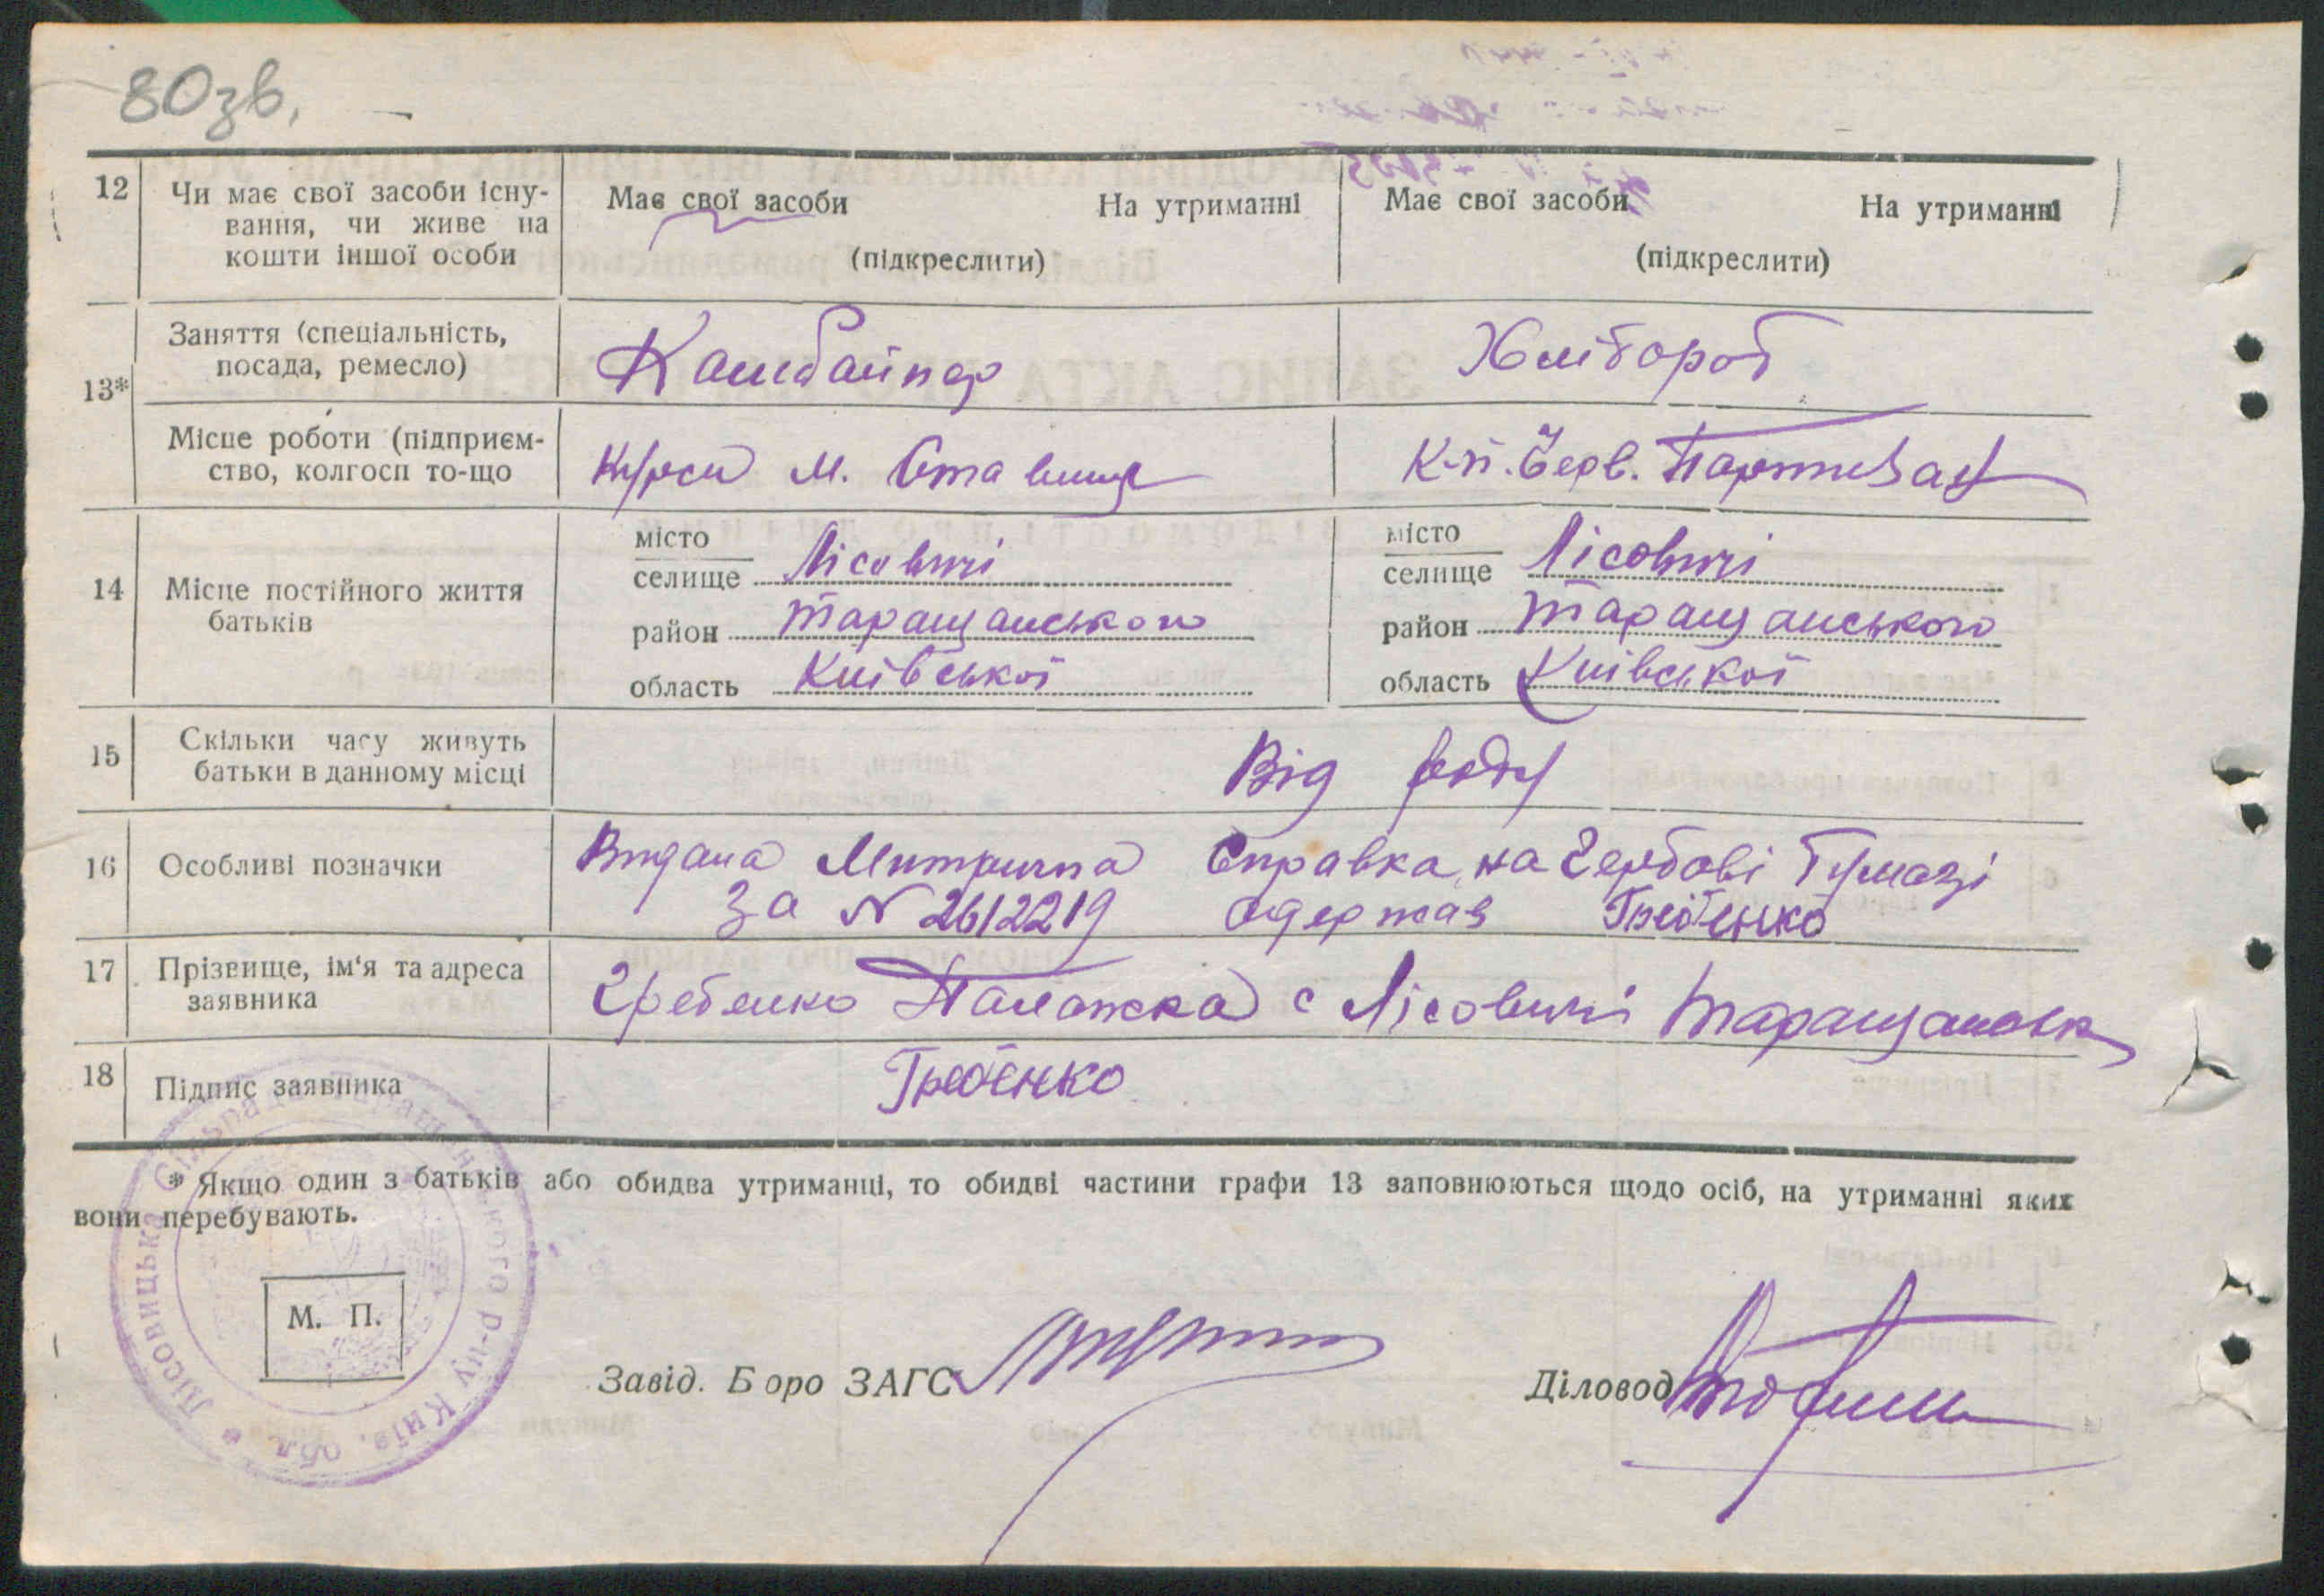 80зв.
12 Чи має свої засоби існу- Має свої засоби На утриманні Має свої засоби На утриманні
вання, чи живе на
кошти іншої особи (підкреслити) (підкреслити)
Заняття (спеціальність, Комбайнер Хлібороб
посада, ремесло)
13*
Місце роботи (підприєм- Курси м. Ставище К-п. Черв. Партизан
ство, колгосп то-що
14 Місце постійного життя
батьків
місто
селище Лісовичі
район Таращанського
область Київської
місто
селище Лісовичі
район Таращанського
область Київської
15 Скільки часу живуть Від роду
батьки в данному місці
16 Особливі позначки Видана Митрична Справка на Гербові Бумазі
за № 2612219 одержав Гребенко
17 Прізвище, ім'я та адреса Гребенко Палажка с Лісовичі Таращанськ
заявника
18 Підпис заявника Гребенко
* Якщо один з батьків або обидва утриманці, то обидві частини графи 13 заповнюються щодо осіб, на утриманні яких
вони перебувають.
Лісовицька Сільрада Таращанського р-ну Київ. обл.
М. П.
Завід. Бюро ЗАГС Діловод